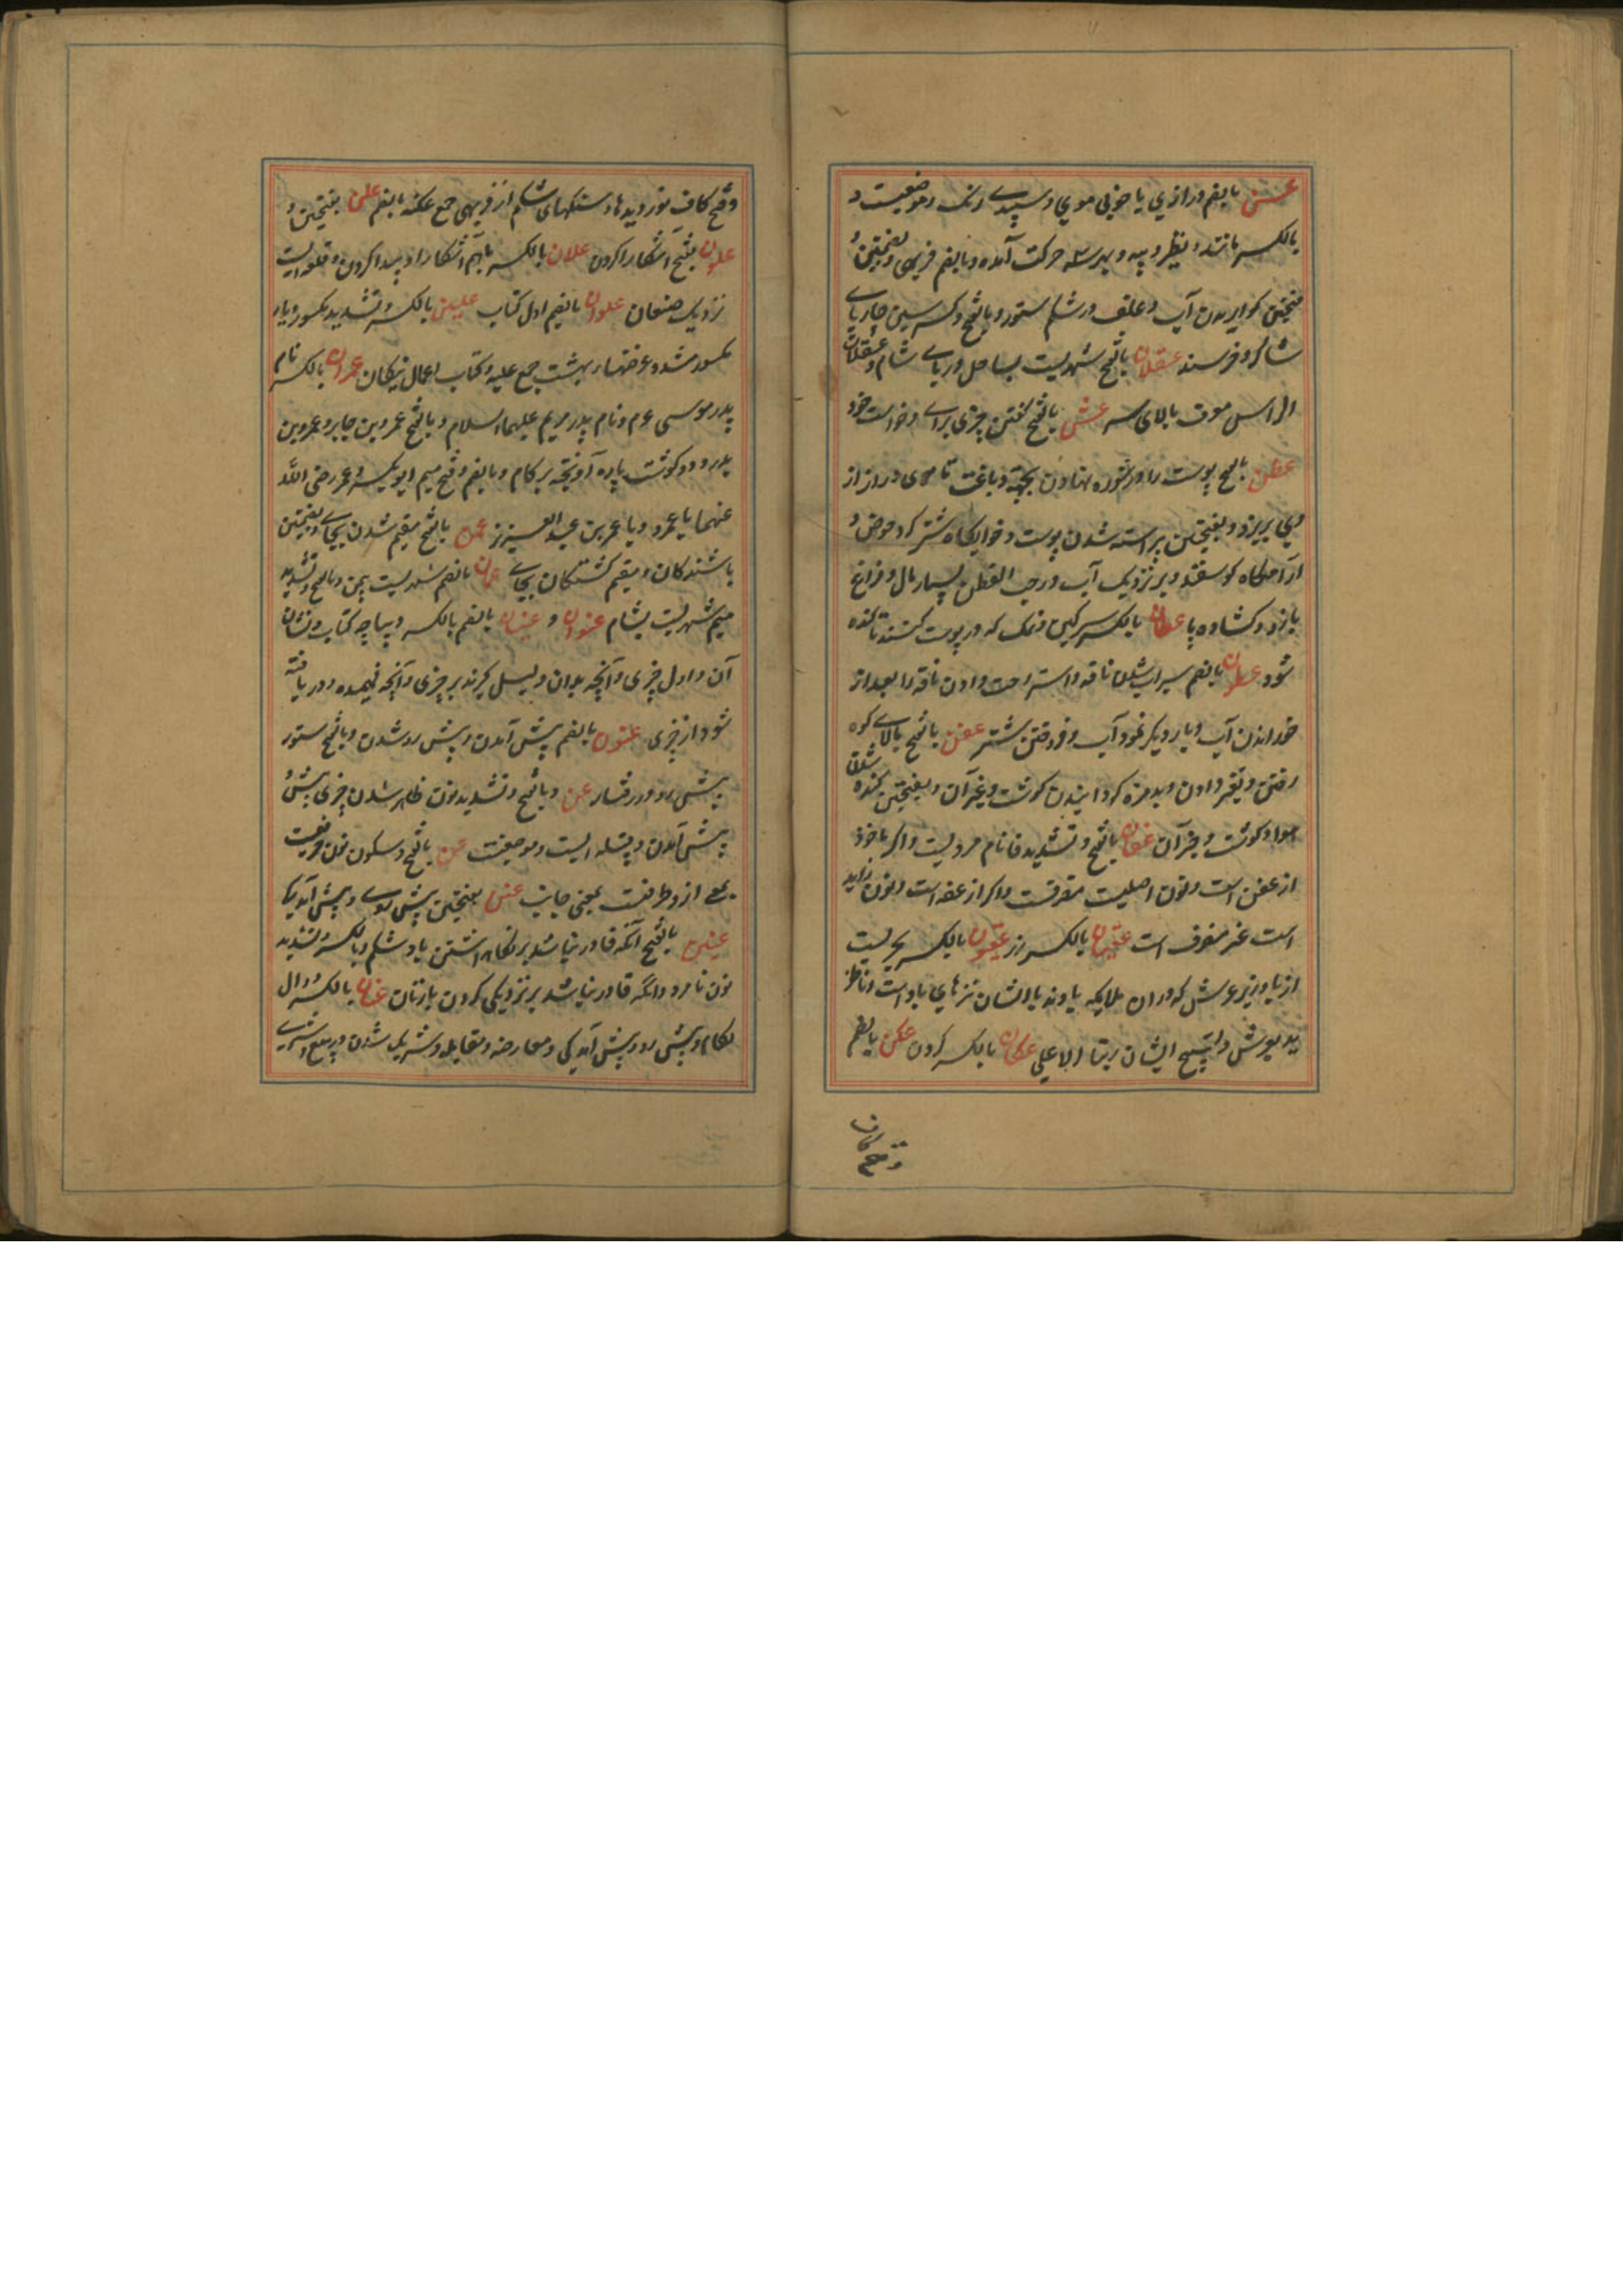 عسن بالضم درازي با خوبی موي و سپیدے رنگ و موضعیست و
بالکسر مانند و نظیر و پیه و بهر سه حرکت آمده و بالضم فربهی و بضمتین و
فتحتین کواریدن آب و علف در شکم ستور و بالفتح و کسر سین چارپاے
شاکر و خرسند عسقلان بالفتح شهریست بساحل دریاے شام و عسقلان
الراس فوق بالای سر عشن بالفتح کفتن چیزی براے و خواست خود
عطن بالفتح پوست را در شوره نهادن بجهة دباغت تا موی دراز از
وي بریزد و بفتحتین پیراسته شدن پوست و خوابکاه شتر کرد حوض و
آرامکاه کوسفند و بز نزدیک آب و رحب العطن بسیار مال و فراخ
بازو و کشاده پا عطان بالکسر سرکین و نمک که در پوست کنند تا کنده نه
شود عطون بالضم سیراب شدن ناقه و استراحت دادن ناقه را بعد از
خوراندن آب و بار دیکر نمود آب و فروختن شتر عفن بالفتح بالاے کوه
رفتن و تغیر دادن و بدمزه کردانیدن کوشت و غیر آن و بفتحتین کنده شدن
هوا و کوشت و غیر آن عفان بالفتح و تشدید فا نام مردیست و اکر ماخوذ
از عفن است و نون اصلیست منصرفست و اکر از عفه است و نون زاید
است غیر منصرف است عقیان بالکسر زر عقیون بالکسر بحریست
از باد زیر عرش که دران ملایکه باوند با ایشان نیزهاي باد است و ناظر
بعرش و تسبیح ایشان ربنا الاعلی عکان بالکسر کردن عکن بالضم
و فتح کاف
و فتح کاف نوردیدها و شکنهای شکم از فربهی جمع عکنه بالضم علن بفتحتین و
علون بضم آشکارا کردن علان بالکسر باهم آشکارا و پیدا کردن و قلعه ایست
نزدیک صنعان علوان بالضم اول کتاب علیین بالکسر و تشدید مکسور و یاء
مکسور مشدد غرفتها در بهشت جمع علیه و کتاب اعمال نیکان عمران بالکسر نام
پدر موسی عم و نام پدر مریم علیهما السلام و بالفتح عمرو بن جابر و عمرو بن
بدر و دو کوشت پاره آویخته بر کام و بالضم و فتح میم ابوبکر و عمر رضی الله
عنهما یا عمر و یا عمر بن عبد العزیز عمن بالفتح مقیم شدن بجاے و بضمتین
باشندکان و مقیم کشتکان بجاے عمان بالضم شهریست بیمن و بالفتح و تشدید
میم شهریست بشام عنوان و عنیان بالضم بالکسر دیباچه کتاب و نشان
آن و اول چیزی و آنچه بدان دلیل کیرند بر چیزی و آنچه فهمیده و دریافته
شود از چیزی عنون بالضم پیش آمدن و پیش رو شدن و بالفتح ستور
پیش رو در رفتار عن و بالفتح و تشدید نون ظاهر شدن چیزی پیش و
پیش آمدن و قبیله ایست و موضعیست عن بالفتح و سکون نون حرفیست
بمعنی از و ظرفست بمعنی جانب عنن بفتحتین پیش سوے و پیش آمدیک
عنین بالفتح آنکه قادر نباشد بر نکاه داشتن باد شکم و بالکسر و تشدید
نون نامرد و آنکه قادر نباشد بر نزدیکی کردن با زنان عنان بالکسر دوال
لکام و پیش رو و پیش آمدکی و معارضه و مقابله و شریک شدن در بیع و شرے